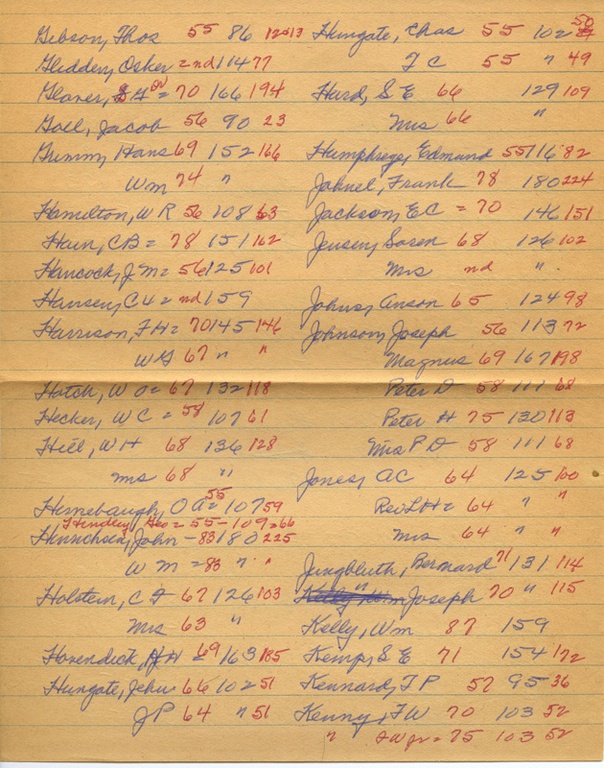 Gibson, Thos 55 86 12+13
Glidden, Osker = nd 114 77
Glover, = 70 166 194
Goll, Jacob 56 90 23
Gummy, Hans 69 152 166
Wm 74 "
Hamilton, W R 56 208
Hain, C B = 78 151 162
Hancock, J M = 56 125 101
Hansen, = nd 159
Harrison, F H = 70 145 146
W G 67 " "
Hatch, W O = 67 132 118
Hecker, W C = 58 107 61
Hill, W H 68 136 128
Mrs 68 "
Hinebaugh, O A = 55 107 59
Hindley, Geo = 55 - 109 = 66
Hinrichsen, John - 83 180 225
W M = 83 " "
Holstein, C F 67 126 103
Mrs 63 "
Horendick, H H = 69 163 185
Hungate, Jehu 66 102 51
J P 64 " 51
Hungate, Chas 55 102 50
T C 55 " 49
Hurd, S E 66 129 109
Mrs 66 "
Humphreys, Edmund 55 116 82
Jahnel, Frank 78 180 224
Jackson, E C = 70 146 151
Jensen, Soren 68 126 102
Mrs nd "
Johns, Anson 65 124 98
Johnson, Joseph 56 113 72
Magnus 69 167 198
Peter D 58 111 68
Peter H 75 130 113
Mrs P D 58 111 68
Jones, A C 64 125 100
Rev L H = 64 " "
Mrs 64 " "
Jungbluth, Bernard 71 131 114
Joseph 70 " 115
Kelly, Wm 87 159
Kemp, S E 71 154 172
Kennard, T P 57 95 36
Kenny, F W 70 103 52
" F W jr = 75 103 52